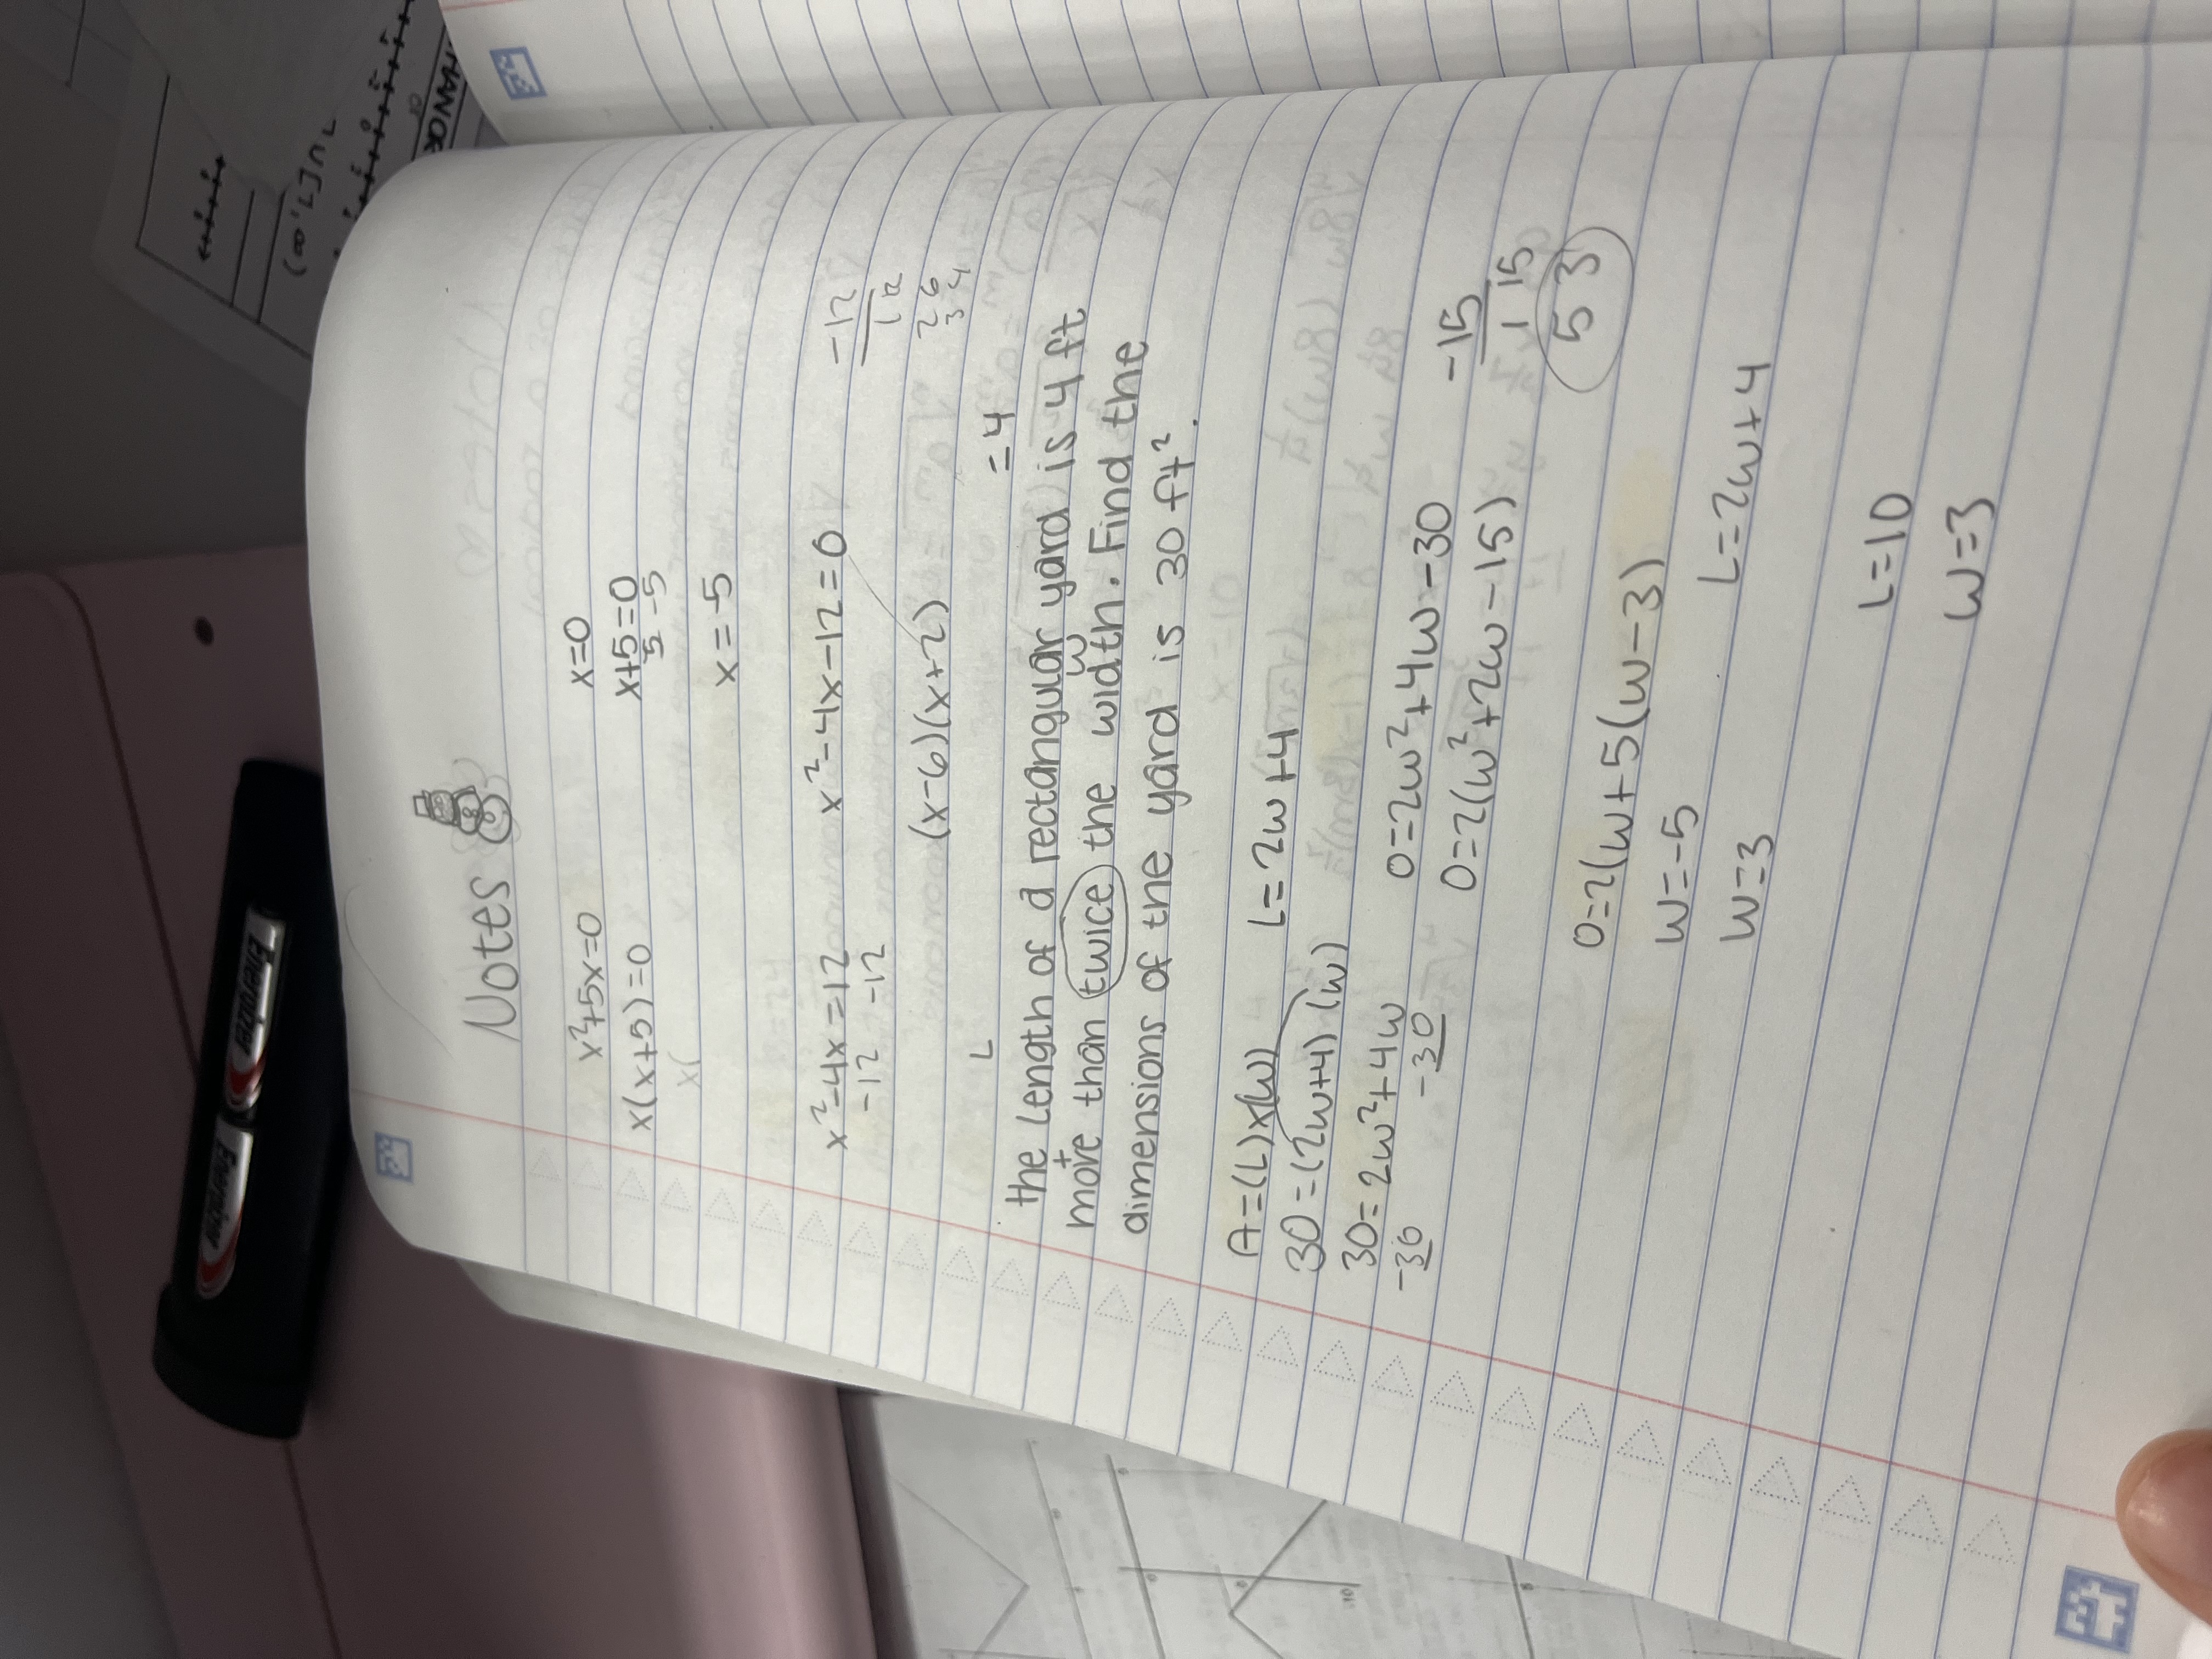 Notes
x²+5x=0 x=0
x(x+5)=0 x+5=0
-5 -5
x(
x=-5
x²-4x=12 x²-4x-12=0 -12
-12 -12 1 12
(x-6)(x+2) 2 6
3 4
L =4
the Length of a rectangular yard is 4 ft
+ w
more than twice the width. Find the
dimensions of the yard is 30 ft².
A=(L)x(w) L=2w+4
30=(2w+4)(w)
30=2w²+4w 0=2w²+4w-30 -15
-30 -30 0=2(w²+2w-15) 1 15
5 3
0=2(w+5(w-3)
w=-5
w=3 L=2w+4
L=10
w=3
Energizer Energizer
[1,∞)